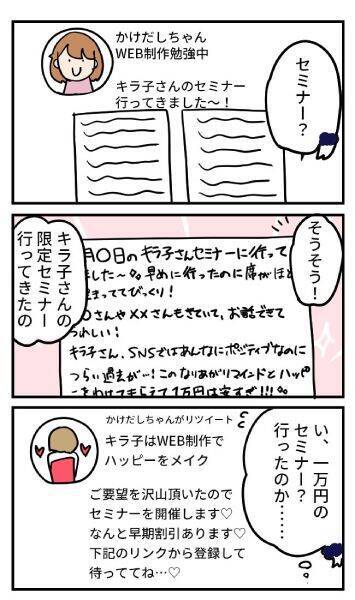 セミナー？
かけだしちゃん
WEB制作勉強中
キラ子さんのセミナー
行ってきました〜！
そうそう！
キラ子さんの
限定セミナー
行ってきたの
月〇日のキラ子さんセミナーに行って
ました〜 早めに行ったのに席がほと
まっててびっくり！
〇さんや××さんもきていて、お話できて
うれしい！
キラ子さん、SNSではあんなにポジティブなのに
つらい過去が…！このなりあがりマインドとハッピ
をわけてもらえて1万円は安すぎ!!!
い、一万円の
セミナー？
行ったのか……
かけだしちゃんがリツイート
キラ子はWEB制作で
ハッピーをメイク
ご要望を沢山頂いたので
セミナーを開催します♡
なんと早期割引あります♡
下記のリンクから登録して
待っててね…♡